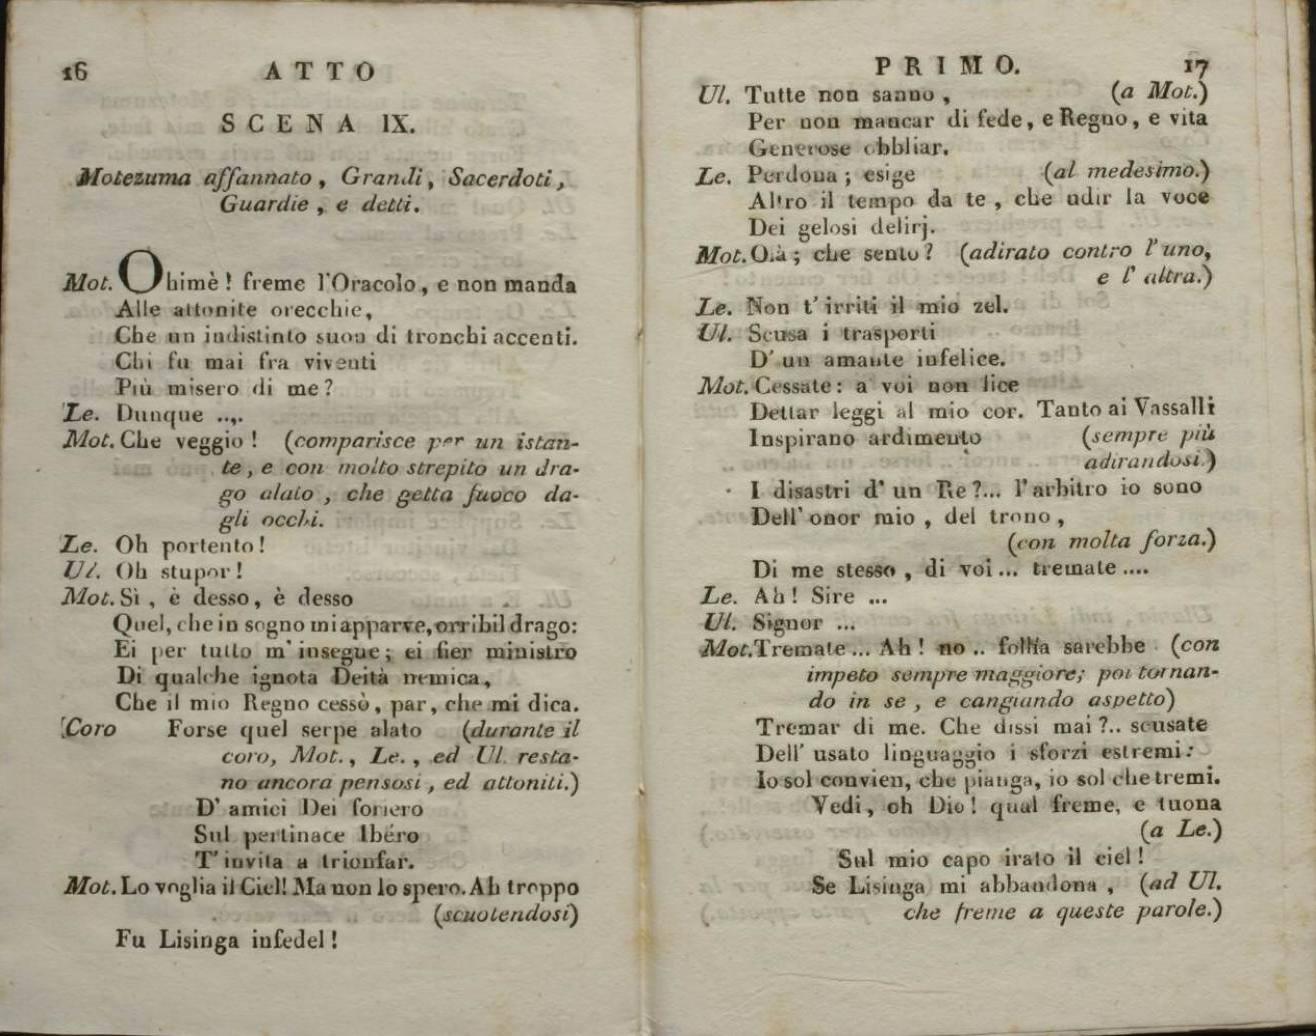 16 ATTO
SCENA IX.
Motezuma affannato, Grandi, Sacerdoti,
Guardie, e detti.
Mot. Ohimè! freme l'Oracolo, e non manda
Alle attonite orecchie,
Che un indistinto suon di tronchi accenti.
Chi fu mai fra viventi
Più misero di me?
Le. Dunque ....
Mot. Che veggio! (comparisce per un istan-
te, e con molto strepito un dra-
go alato, che getta fuoco da-
gli occhi.
Le. Oh portento!
Ul. Oh stupor!
Mot. Sì, è desso, è desso
Quel, che in sogno mi apparve, orribil drago:
Ei per tutto m'insegue; ei fier ministro
Di qualche ignota Deità nemica,
Che il mio Regno cessò, par, che mi dica.
Coro Forse quel serpe alato (durante il
coro, Mot., Le., ed Ul. resta-
no ancora pensosi, ed attoniti.)
D'amici Dei foriero
Sul pertinace Ibéro
T'invita a trionfar.
Mot. Lo voglia il Ciel! Ma non lo spero. Ah troppo
(scuotendosi)
Fu Lisinga infedel!
PRIMO. 17
Ul. Tutte non sanno, (a Mot.)
Per non mancar di fede, e Regno, e vita
Generose obbliar.
Le. Perdona; esige (al medesimo.)
Altro il tempo da te, che udir la voce
Dei gelosi delirj.
Mot. Olà; che sento? (adirato contro l'uno,
e l'altra.)
Le. Non t'irriti il mio zel.
Ul. Scusa i trasporti
D'un amante infelice.
Mot. Cessate: a voi non lice
Dettar leggi al mio cor. Tanto ai Vassalli
Inspirano ardimento (sempre più
adirandosi.)
I disastri d'un Re?... l'arbitro io sono
Dell'onor mio, del trono,
(con molta forza.)
Di me stesso, di voi... tremate....
Le. Ah! Sire ...
Ul. Signor ...
Mot. Tremate... Ah! no.. follìa sarebbe (con
impeto sempre maggiore; poi tornan-
do in se, e cangiando aspetto)
Tremar di me. Che dissi mai?.. scusate
Dell'usato linguaggio i sforzi estremi:
Io sol convien, che pianga, io sol che tremi.
Vedi, oh Dio! qual freme, e tuona
(a Le.)
Sul mio capo irato il ciel!
Se Lisinga mi abbandona, (ad Ul.
che freme a queste parole.)